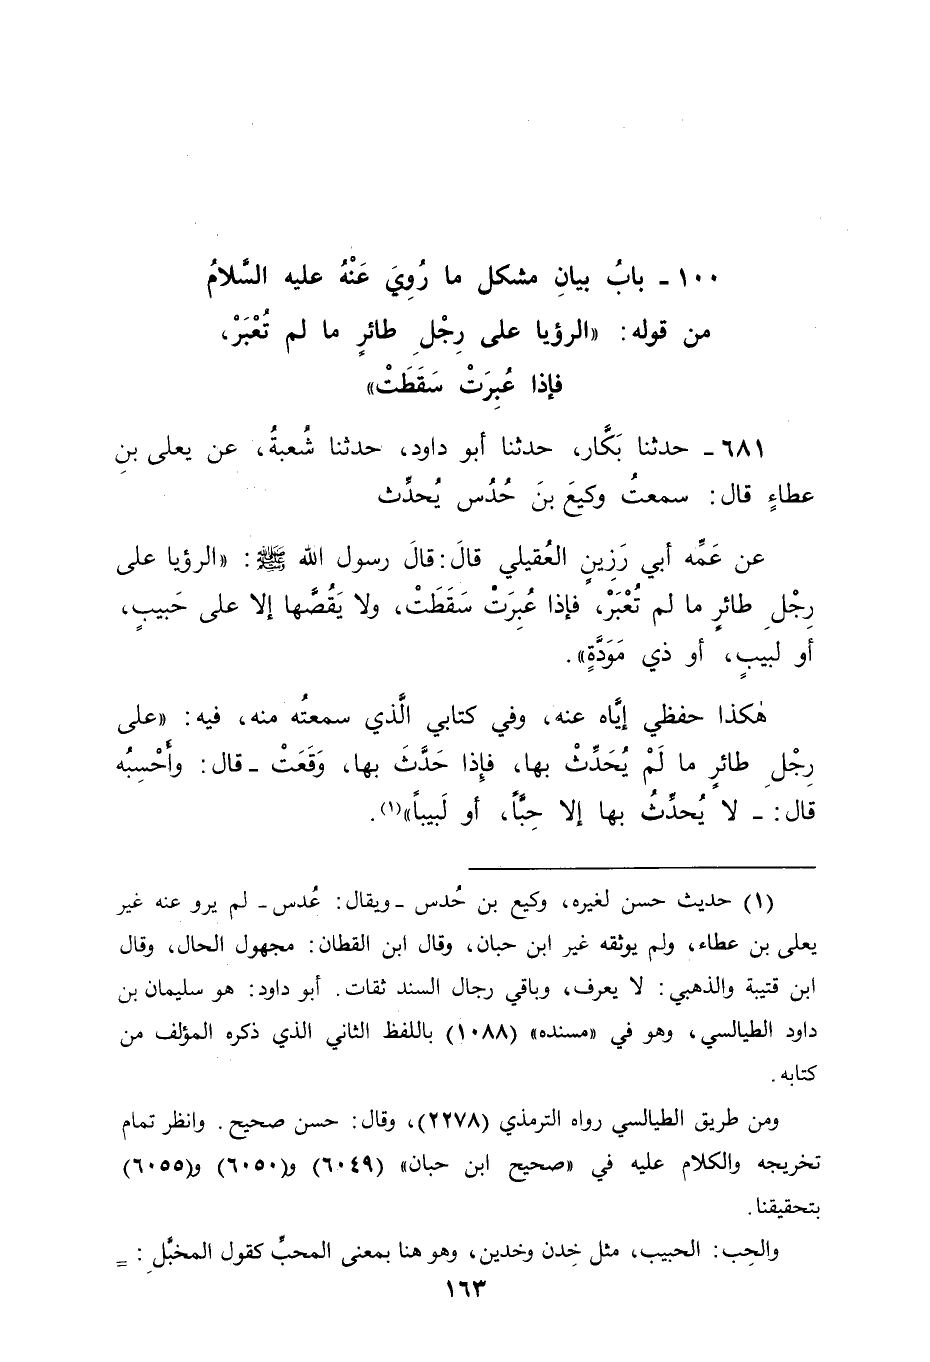 ١٠٠ ـ بابُ بيانِ مشكل ما رُوِيَ عَنْهُ عليه السَّلامُ
من قوله: «الرؤيا على رِجْلِ طائرٍ ما لم تُعْبَرْ،
فإذا عُبِرَتْ سَقَطَتْ»
٦٨١ ـ حدثنا بَكَّار، حدثنا أبو داود، حدثنا شُعبةُ، عن يعلى بنِ
عطاءٍ قال: سمعتُ وكيعَ بنَ حُدُس يُحدِّث
عن عَمِّه أبي رَزِينٍ العُقيلي قالَ: قالَ رسول الله ﷺ: «الرؤيا على
رِجْلِ طائرٍ ما لم تُعْبَرْ، فإذا عُبِرَتْ سَقَطَتْ، ولا يَقُصَّها إلا على حَبيبٍ،
أو لبيبٍ، أو ذي مَوَدَّةٍ».
هٰكذا حفظي إيَّاه عنه، وفي كتابي الَّذي سمعتُه منه، فيه: «على
رِجْلِ طائرٍ ما لَمْ يُحَدِّثْ بها، فإِذا حَدَّثَ بها، وَقَعَتْ ـ قال: وأَحْسِبُه
قال: ـ لا يُحدِّثُ بها إلا حِبَّاً، أو لَبيباً»(١).
(١) حديث حسن لغيره، وكيع بن حُدس ـ ويقال: عُدس ـ لم يرو عنه غير
يعلى بن عطاء، ولم يوثقه غير ابن حبان، وقال ابن القطان: مجهول الحال، وقال
ابن قتيبة والذهبي: لا يعرف، وباقي رجال السند ثقات. أبو داود: هو سليمان بن
داود الطيالسي، وهو في «مسنده» (١٠٨٨) باللفظ الثاني الذي ذكره المؤلف من
كتابه.
ومن طريق الطيالسي رواه الترمذي (٢٢٧٨)، وقال: حسن صحيح. وانظر تمام
تخريجه والكلام عليه في «صحيح ابن حبان» (٦٠٤٩) و(٦٠٥٠) و(٦٠٥٥)
بتحقيقنا.
والحِب: الحبيب، مثل خِدن وخدين، وهو هنا بمعنى المحبِّ كقول المخبَّل: =
١٦٣